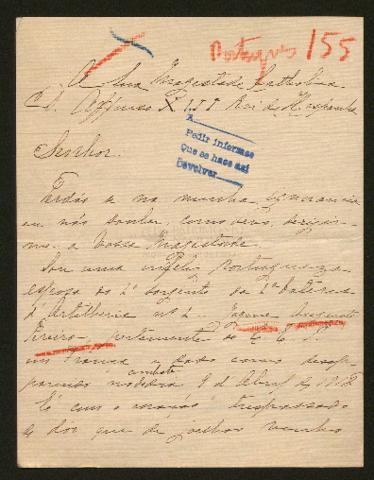 Portugues 155
A Sua Magestade Catholica
Affonso XIII Rei de Hespanha
A
Pedir informase
Que se hace así
Devolver
Senhor.
Perdão a na minha ignorancia
eu não sonhar, como devo, dirigir-
me a Vossa Magestade.
Sou uma infeliz portugueza
esposa do 2º sargento da 1ª bateria
d'Artilheria nº 2
Pereira, pertencente ao C. E. P.
em França e dado como desap-
parecido no combate de 9 d'Abril de 1918
É com o coração trespassado
de dôr que de joelhos venho